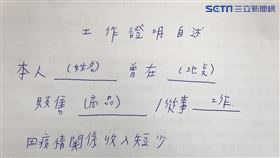 SETN 三立新聞網
工作證明自述
本人 (姓名) 曾在 (地點)
販售 (產品) /從事 工作
因疫情關係收入短少